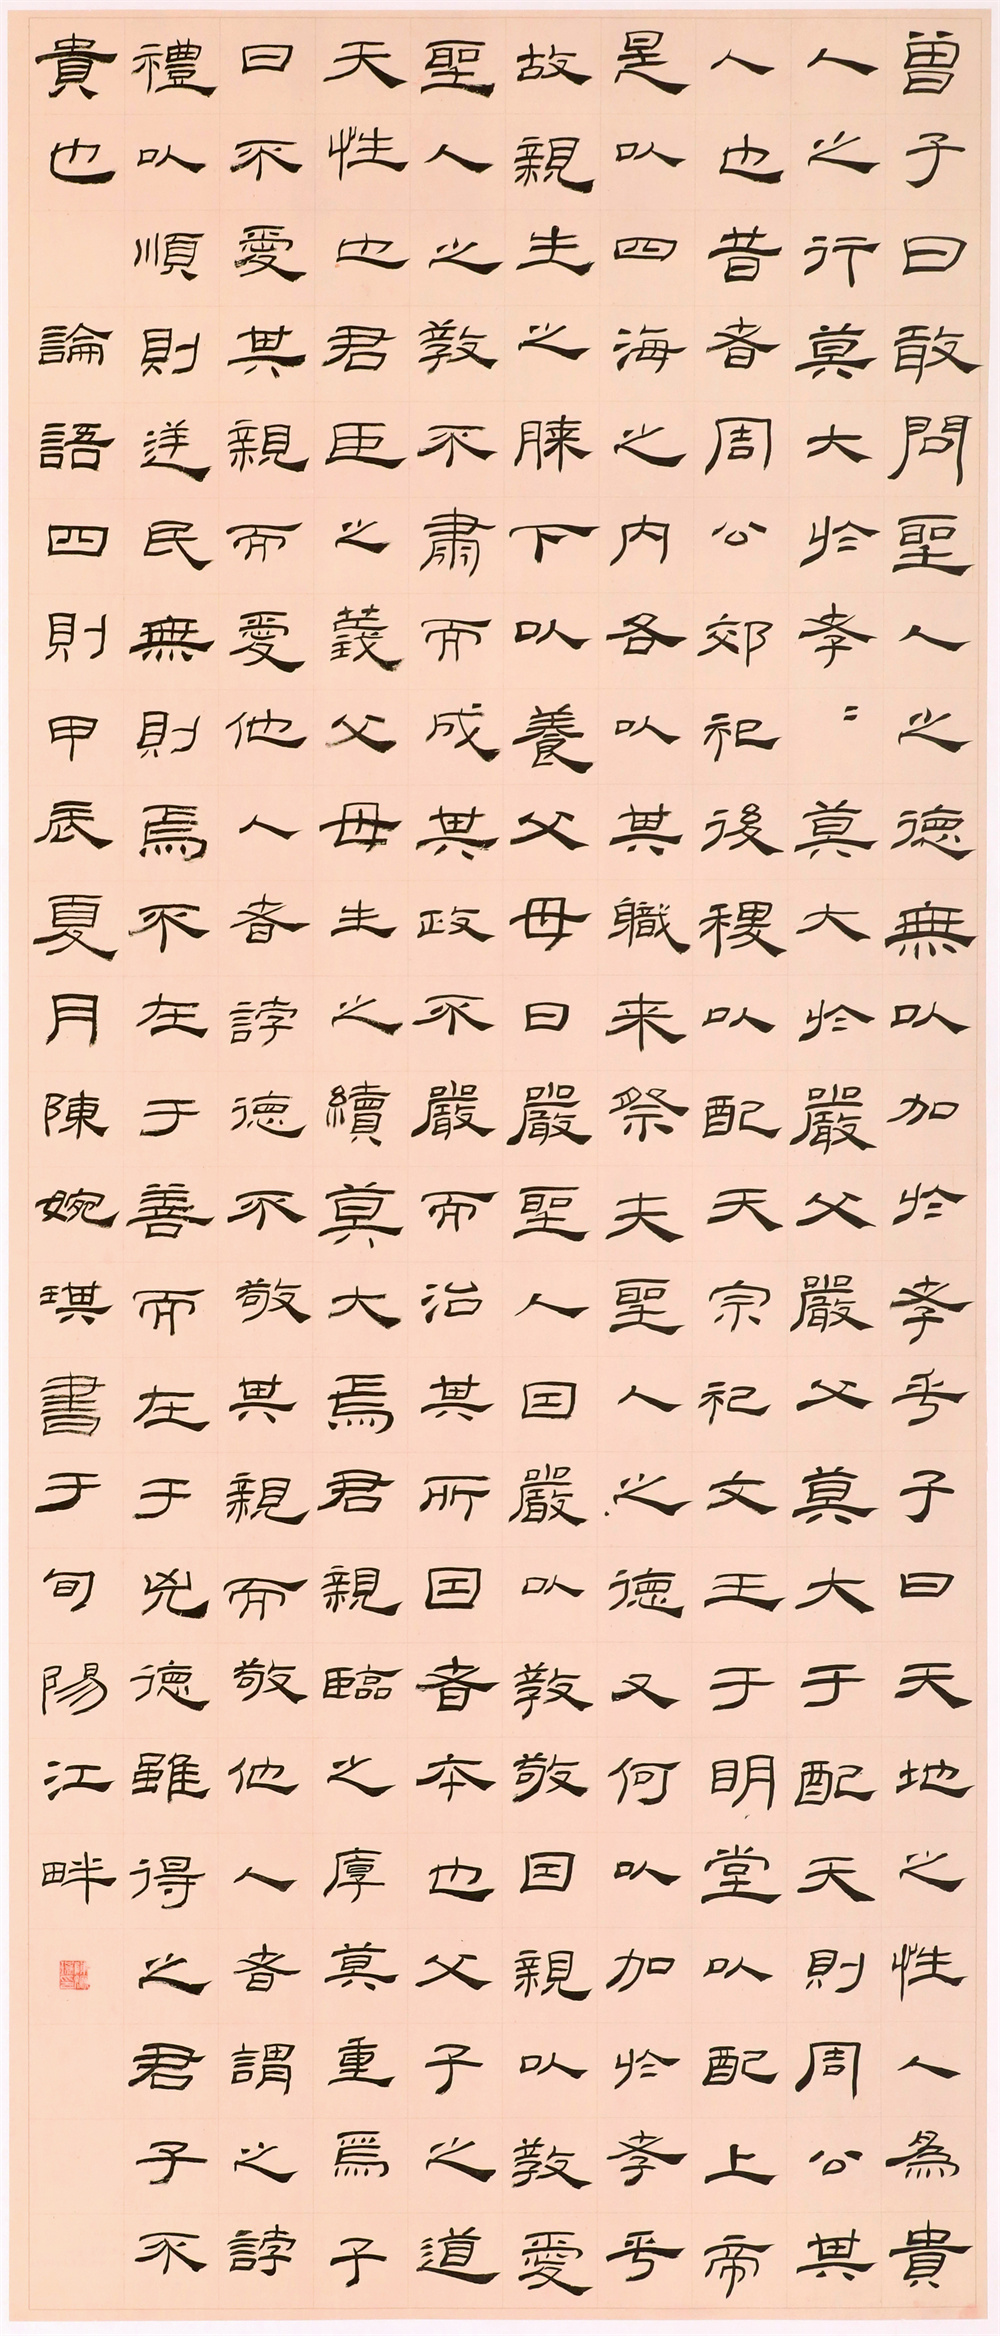 曾子曰敢問聖人之德無以加於孝乎子曰天地之性人為貴
人之行莫大於孝〻莫大於嚴父嚴父莫大于配天則周公其
人也昔者周公郊祀後稷以配天宗祀文王于明堂以配上帝
是以四海之内各以其職来祭夫聖人之德又何以加於孝乎
故親生之膝下以養父母日嚴聖人因嚴以教敬因親以教愛
聖人之教不肅而成其政不嚴而治其所因者本也父子之道
天性也君臣之義父母生之續莫大焉君親臨之厚莫重焉子
曰不愛其親而愛他人者誖德不敬其親而敬他人者謂之誖
禮以順則逆民無則焉不在于善而在于兇德雖得之君子不
貴也 論語四則甲辰夏月陳婉琪書于旬陽江畔